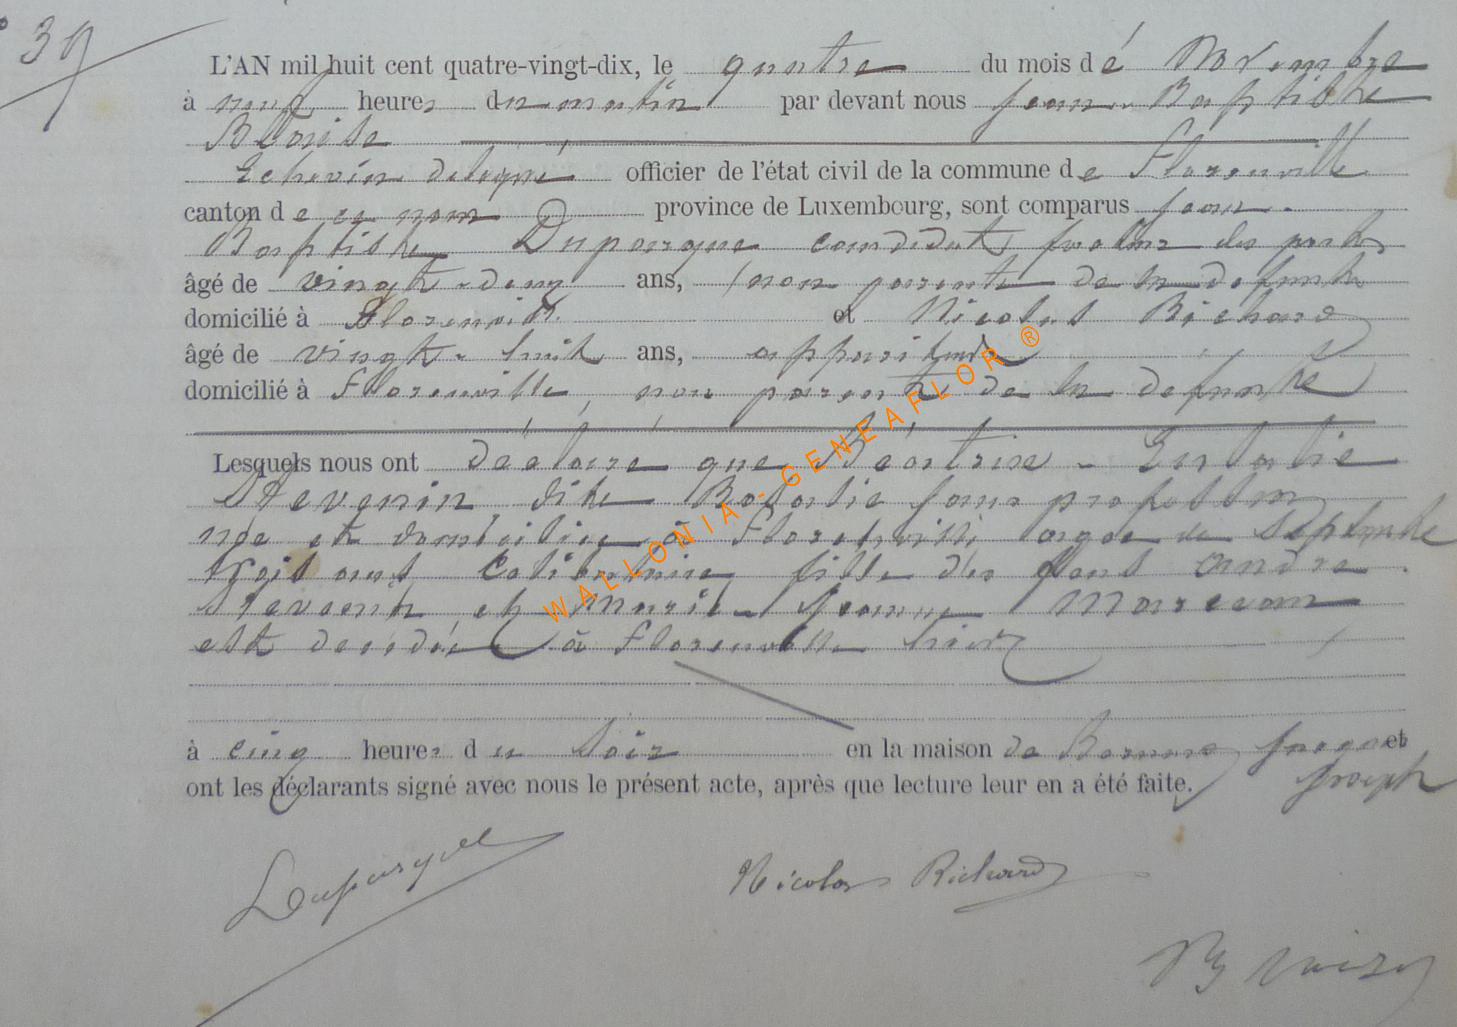 39
L'AN mil huit cent quatre-vingt-dix, le quatre du mois de Novembre
à neuf heures du matin par devant nous Jean-Baptiste
Echevin délégué officier de l'état civil de la commune de Florenville
canton de ce nom province de Luxembourg, sont comparus Jean-
Baptiste Duparque candidat
âgé de vingt-deux ans, non parent de la défunte
domicilié à et Nicolas Richard
âgé de vingt-huit ans, appariteur
domicilié à Florenville, non parent de la défunte
Lesquels nous ont déclaré que Béatrice-Eulalie
Stevenin dite sans profession
née et domiciliée à Florenville agée de septante
trois ans Célibataire fille des André
Stevenin et Marie-Jeanne
est décédée à Florenville hier
à cinq heures du soir en la maison de et
Joseph
ont les déclarants signé avec nous le présent acte, après que lecture leur en a été faite.
Duparque
Nicolas Richard
WALLONIA-GENEAFLOR ®